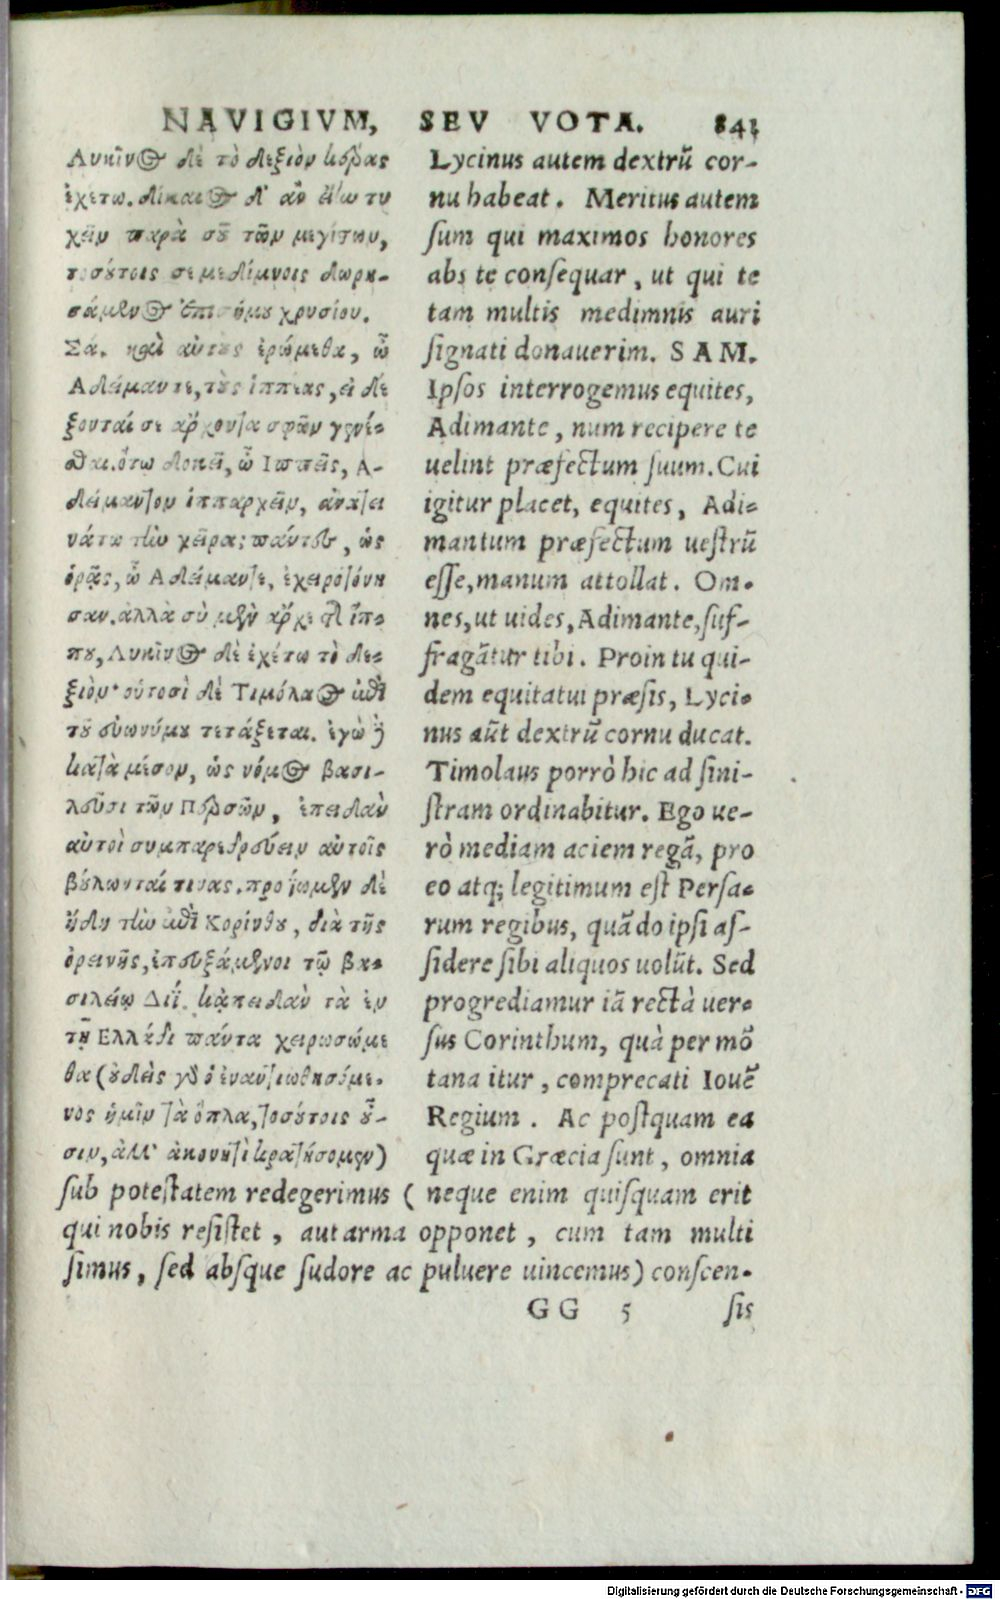 NAVIGIVM, SEV VOTA. 841
Λυκῖνος δὲ τὸ δεξιὸν κέρας
ἐχέτω. δίκαιος δ' ἂν εἴην τυ
χεῖν παρὰ σοῦ τῶν μεγίστων,
τοσούτοις σε μεδίμνοις δωρη-
σάμενος ἐπισήμου χρυσίου.
Σα. καὶ αὐτοὺς ἐρώμεθα, ὦ
Αδείμαντε, τοὺς ἱππέας, εἰ δέ
ξονταί σε ἄρχοντα σφῶν γενέ-
σθαι. ὅτῳ δοκεῖ, ὦ Ιππεῖς, Α-
δείμαντον ἱππαρχεῖν, ἀνατει
νάτω τὴν χεῖρα; πάντες, ὡς
ὁρᾷς, ὦ Αδείμαντε, ἐχειροτόνη
σαν. ἀλλὰ σὺ μὲν ἄρχε τῆς ἵπ-
που, Λυκῖνος δὲ ἐχέτω τὸ δε-
ξιόν· οὑτοσὶ δὲ Τιμόλαος ἐπὶ
τοῦ εὐωνύμου τετάξεται. ἐγὼ δὲ
κατὰ μέσον, ὡς νόμος βασι-
λεῦσι τῶν Περσῶν, ἐπειδὰν
αὐτοὶ συμπαρεδρεύειν αὐτοῖς
βούλωνταί τινας. προΐωμεν δὲ
ἤδη τὴν ἐπὶ Κορίνθου, διὰ τῆς
ὀρεινῆς, ἐπευξάμενοι τῷ βα-
σιλείῳ Διΐ. κἀπειδὰν τὰ ἐν
τῇ Ελλάδι πάντα χειρωσώμε
θα (οὐδεὶς γὰρ ὁ ἐναντιωθησόμε-
νος ἡμῖν τὰ ὅπλα, τοσούτοις οὖ-
σιν, ἀλλ' ἀκονητὶ κρατήσομεν)
Lycinus autem dextrũ cor-
nu habeat. Meritus autem
ſum qui maximos honores
abs te conſequar, ut qui te
tam multis medimnis auri
ſignati donauerim. SAM.
Ipſos interrogemus equites,
Adimante, num recipere te
uelint præfectum ſuum. Cui
igitur placet, equites, Adi-
mantum præfectum ueſtrũ
eſſe, manum attollat. Om-
nes, ut uides, Adimante, ſuf-
fragãtur tibi. Proin tu qui-
dem equitatui præſis, Lyci-
nus aũt dextrũ cornu ducat.
Timolaus porrò hic ad ſini-
ſtram ordinabitur. Ego ue-
rò mediam aciem regã, pro
eo atq; legitimum eſt Perſa-
rum regibus, quãdo ipſi aſ-
ſidere ſibi aliquos uolũt. Sed
progrediamur iã rectà uer-
ſus Corinthum, quà per mõ
tana itur, comprecati Iouẽ
Regium. Ac poſtquam ea
quæ in Græcia ſunt, omnia
ſub poteſtatem redegerimus (neque enim quiſquam erit
qui nobis reſiſtet, aut arma opponet, cum tam multi
ſimus, ſed abſque ſudore ac puluere uincemus) conſcen-
GG 5 ſis
Digitalisierung gefördert durch die Deutsche Forschungsgemeinschaft - DFG